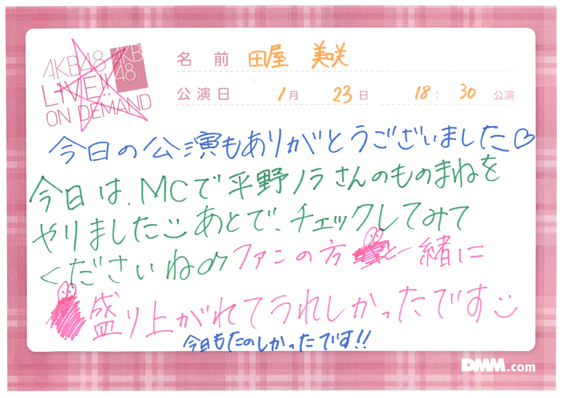 AKB48
LIVE!!
ON DEMAND
AKB
48
名前 田屋 美咲
公演日 1月 23日 18:30 公演
今日の公演もありがとうございました♡
今日は、MCで平野ノラさんのものまねを
やりました あとで、チェックしてみて
くださいね♪ファンの方と一緒に
盛り上がれてうれしかったです
今日もたのしかったです!!
DMM.com